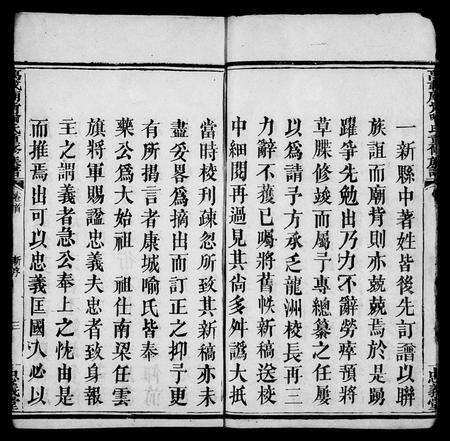 一新縣中著姓皆後先訂譜以聯
族誼而廟背則亦兢兢焉於是踴
躍爭先勉出乃力不辭勞瘁預將
草牒修竣而属予專總纂之任屢
以為請予方承乏龍洲校長再三
力辭不獲已囑將舊帙新稿送校
中細閱再過見其尚多舛譌大抵
當時校刋疎忽所致其新稿亦未
盡妥畧為摘出而訂正之抑予更
有所揚言者康城喻氏皆奉
藥公為大始祖 祖仕南梁任雲
旗將軍賜謚忠義夫忠者致身報
主之謂義者急公奉上之忱由是
而推焉出可以忠義匡國人必以
卷首
新序
三
忠義堂